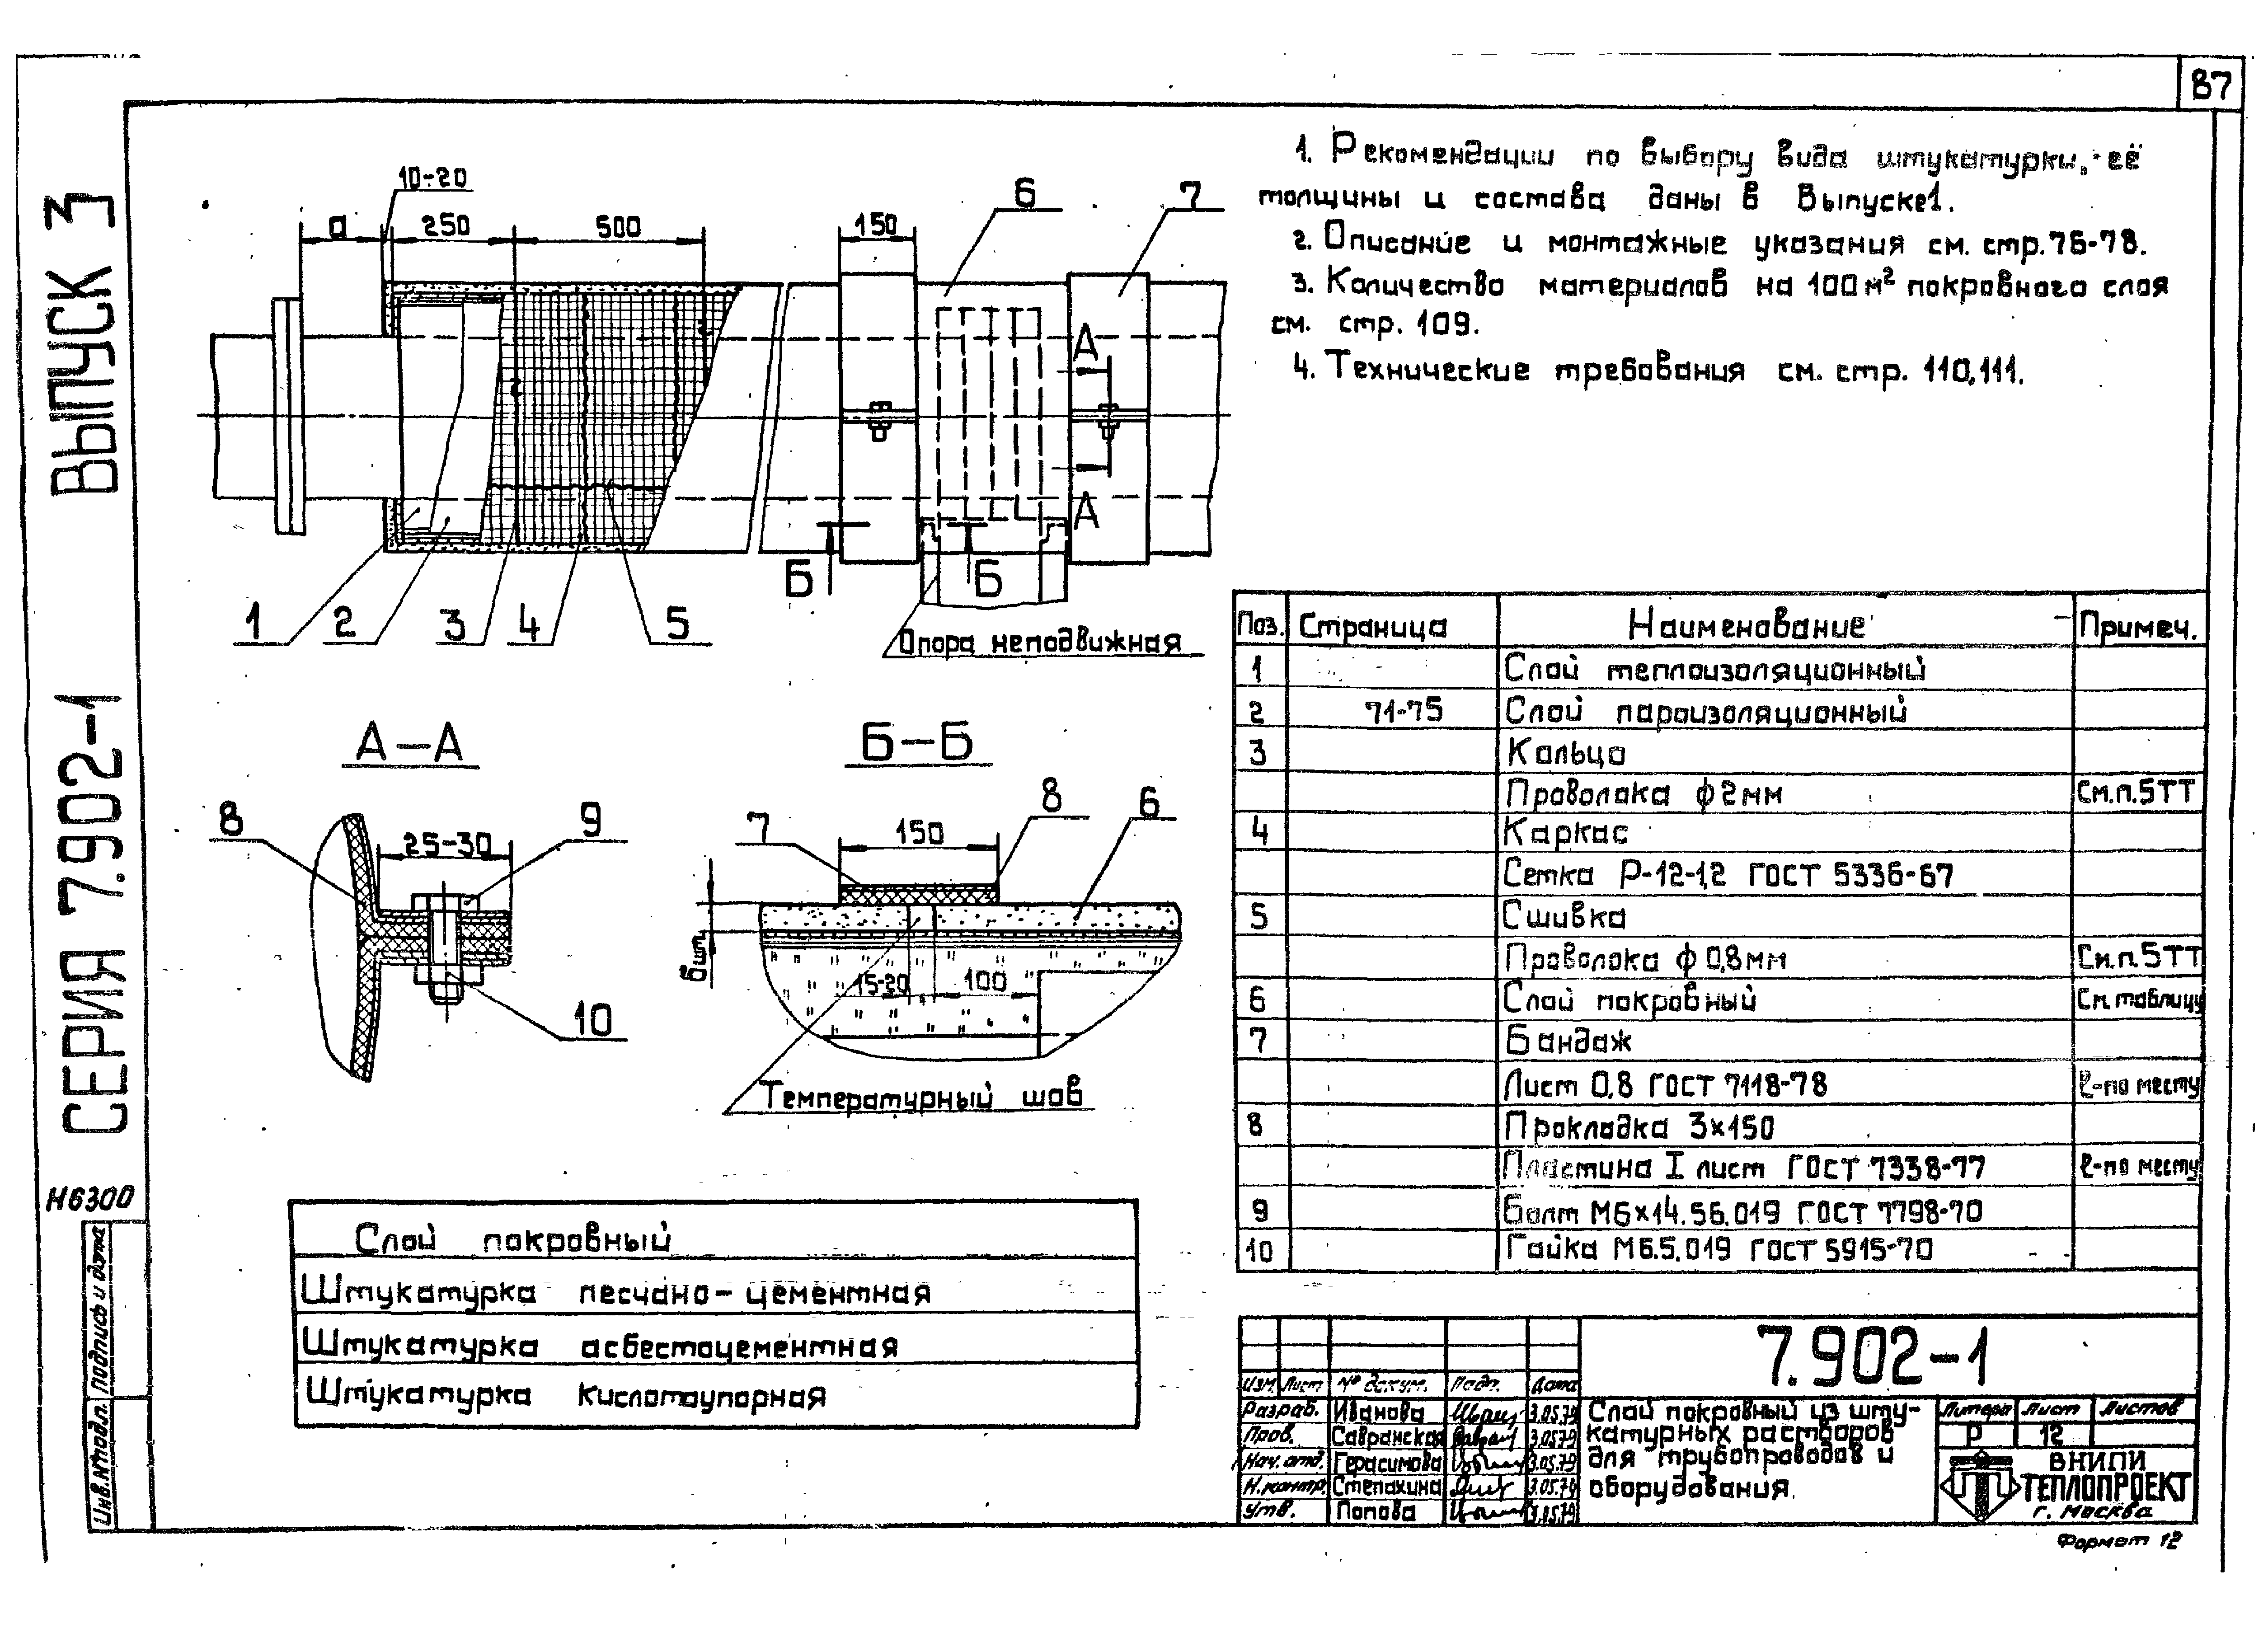 87
1. Рекомендации по выбору вида штукатурки, её
толщины и состава даны в Выпуске1.
2. Описание и монтажные указания см. стр. 76-78.
3. Количество материалов на 100 м² покровного слоя
см. стр. 109.
4. Технические требования см. стр. 110, 111.
10-20
а
250
500
150
6
7
А
А
Б
Б
1
2
3
4
5
Опора неподвижная
А–А
8
25-30
9
10
Б–Б
7
150
8
6
бшт.
15-20
100
Температурный шов
Поз. Страница Наименование Примеч.
1 Слой теплоизоляционный
2 71-75 Слой пароизоляционный
3 Кольцо
Проволока ф 2мм См.п.5ТТ
4 Каркас
Сетка Р-12-1,2 ГОСТ 5336-67
5 Сшивка
Проволока ф 0,8мм См.п.5ТТ
6 Слой покровный См.таблицу
7 Бандаж
Лист 0,8 ГОСТ 7118-78 ℓ-по месту
8 Прокладка 3х150
Пластина I лист ГОСТ 7338-77 ℓ-по месту
9 Болт М6х14.56.019 ГОСТ 7798-70
10 Гайка М6.5.019 ГОСТ 5915-70
Слой покровный
Штукатурка песчано-цементная
Штукатурка асбестоцементная
Штукатурка кислотоупорная
7.902-1
Изм. Лист № докум. Подп. Дата
Разраб. Иванова 3.05.79
Пров. Савранская 3.05.79
Нач. отд. Герасимова 3.05.79
Н.контр. Степахина 3.05.79
Утв. Попова 3.05.79
Слой покровный из шту-
катурных растворов
для трубопроводов и
оборудования.
Литера Лист Листов
Р 12
ВНИПИ
ТЕПЛОПРОЕКТ
г. Москва
Формат 12
СЕРИЯ 7.902-1 ВЫПУСК 3
Н6300
Инв.№подл. Подпись и дата